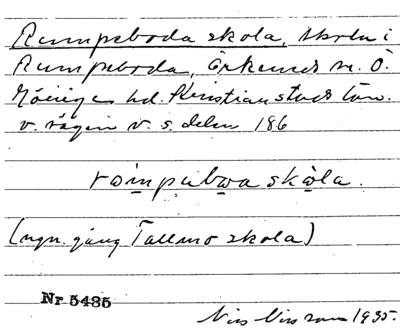 Rumpeboda skola, skola i
Rumpeboda, Örkeneds sn. Ö.
Göinge hd. Kristianstads län.
v. vägen v. s. delen 186
rωmpəbωa skωla.
(ngn. gång Tallmo skola)
Nr 5485
Nils Nilsson 1935.